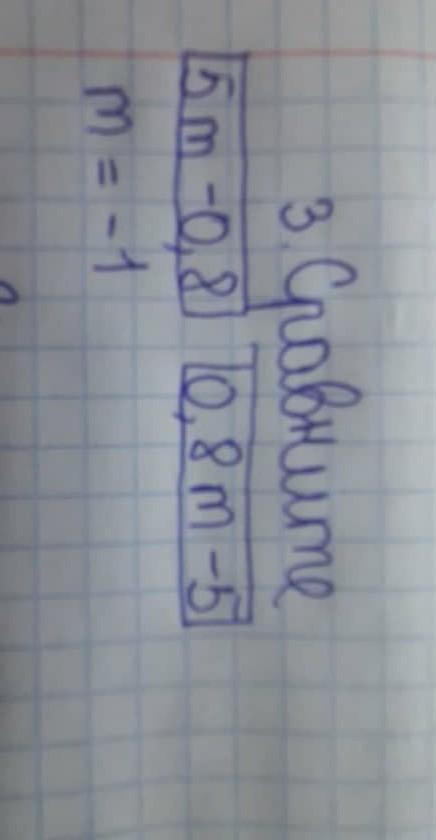 3. Сравните
5m -0,8 0,8m -5
m = -1